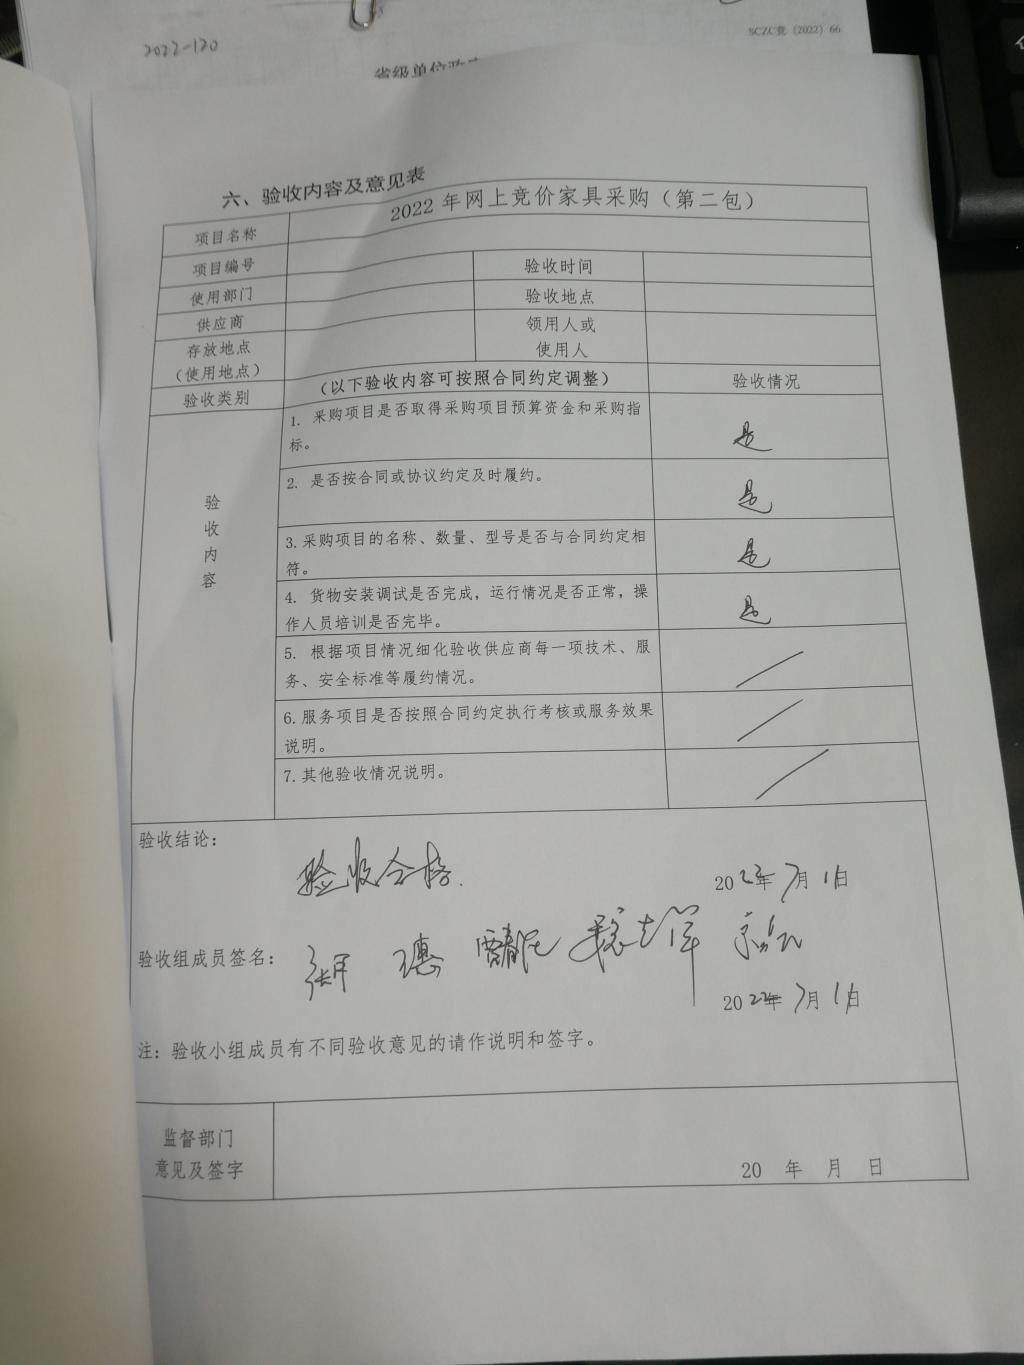 2022-120
SCZC竞（2022）66
省级单位政
六、验收内容及意见表
项目名称 2022 年网上竞价家具采购（第二包）
项目编号 验收时间
使用部门 验收地点
供应商 领用人或
使用人
存放地点
（使用地点）
验收类别 （以下验收内容可按照合同约定调整） 验收情况
验收内容
1. 采购项目是否取得采购项目预算资金和采购指
标。 是
2. 是否按合同或协议约定及时履约。 是
3.采购项目的名称、数量、型号是否与合同约定相
符。 是
4. 货物安装调试是否完成，运行情况是否正常，操
作人员培训是否完毕。 是
5. 根据项目情况细化验收供应商每一项技术、服
务、安全标准等履约情况。
6.服务项目是否按照合同约定执行考核或服务效果
说明。
7.其他验收情况说明。
验收结论：
验收合格. 2022年 7月 1日
验收组成员签名：
2022年 7月 1日
注：验收小组成员有不同验收意见的请作说明和签字。
监督部门
意见及签字
20 年 月 日